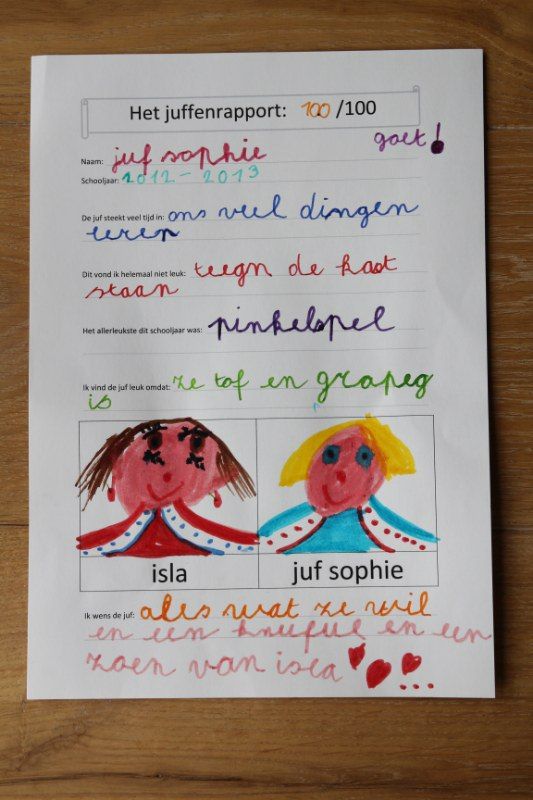 Het juffenrapport: 100 /100
goet!
Naam: juf sophie
Schooljaar: 2012-2013
De juf steekt veel tijd in: ons veel dingen
leren
Dit vond ik helemaal niet leuk: teegn de kast
staan
Het allerleukste dit schooljaar was: pinkelspel
Ik vind de juf leuk omdat: ze tof en grapeg
is
isla
juf sophie
Ik wens de juf: ales wat ze wil
en een knuful en een
zoen van isla